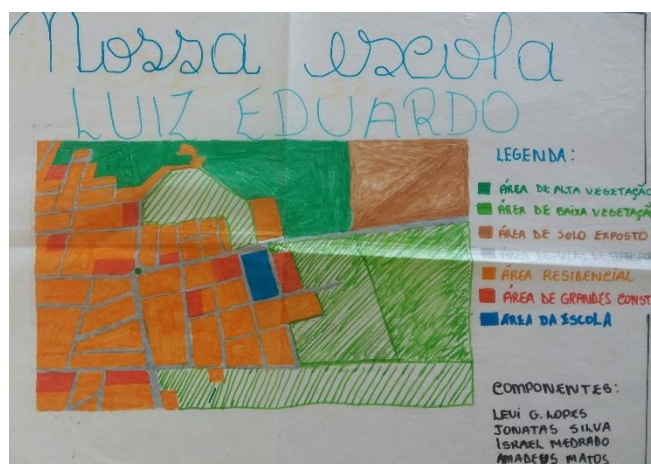 Nossa escola
LUIZ EDUARDO
LEGENDA:
ÁREA DE ALTA VEGETAÇÃO
ÁREA DE BAIXA VEGETAÇÃO
ÁREA DE SOLO EXPOSTO
ÁREA RESIDENCIAL
ÁREA DE GRANDES CONST
ÁREA DA ESCOLA
COMPONENTES:
LEVI G. LOPES
JONATAS SILVA
ISRAEL MEDRADO
AMADEUS MATOS